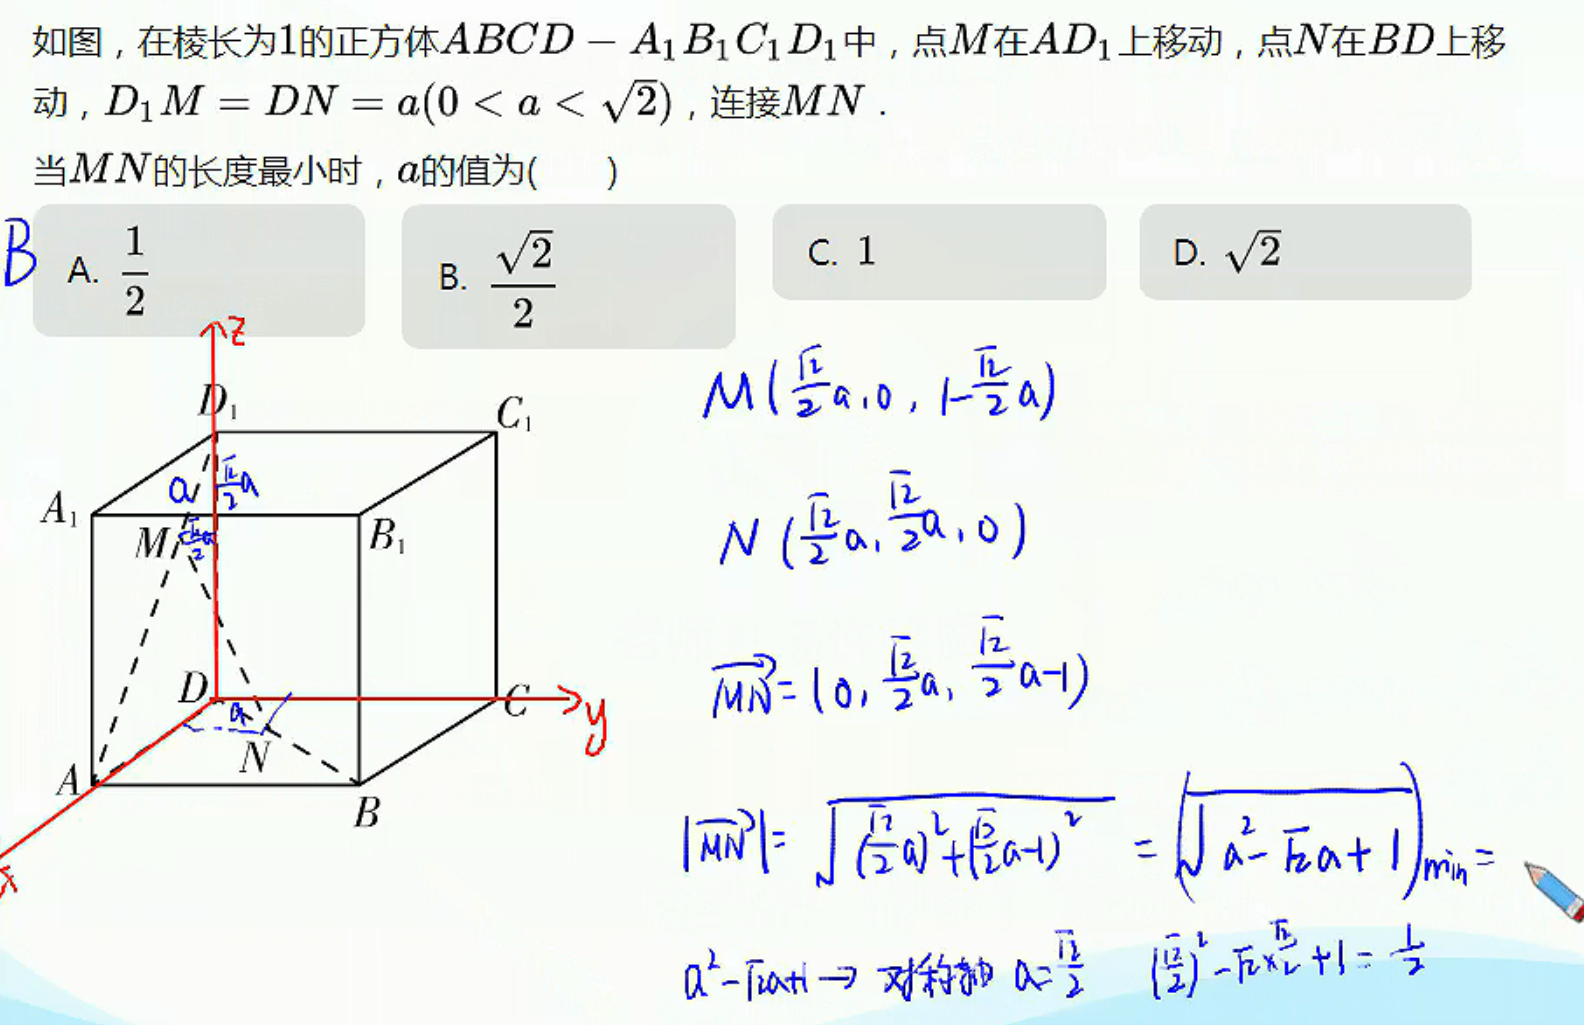 如图，在棱长为1的正方体ABCD − A₁B₁C₁D₁中，点M在AD₁上移动，点N在BD上移
动，D₁M = DN = a(0 < a < √2)，连接MN．
当MN的长度最小时，a的值为(　　)
B
A. 1/2
B. √2/2
C. 1
D. √2
z
D₁
C₁
a
√2/2 a
A₁
M
√2/2 a
B₁
D
a
C
y
N
A
B
x
M(√2/2 a, 0, 1−√2/2 a)
N(√2/2 a, √2/2 a, 0)
MN⃗ = (0, √2/2 a, √2/2 a−1)
|MN⃗| = √((√2/2 a)² + (√2/2 a−1)²) = (√(a²−√2a+1))min =
a²−√2a+1 → 对称轴 a=√2/2 (√2/2)²−√2×√2/2+1=1/2